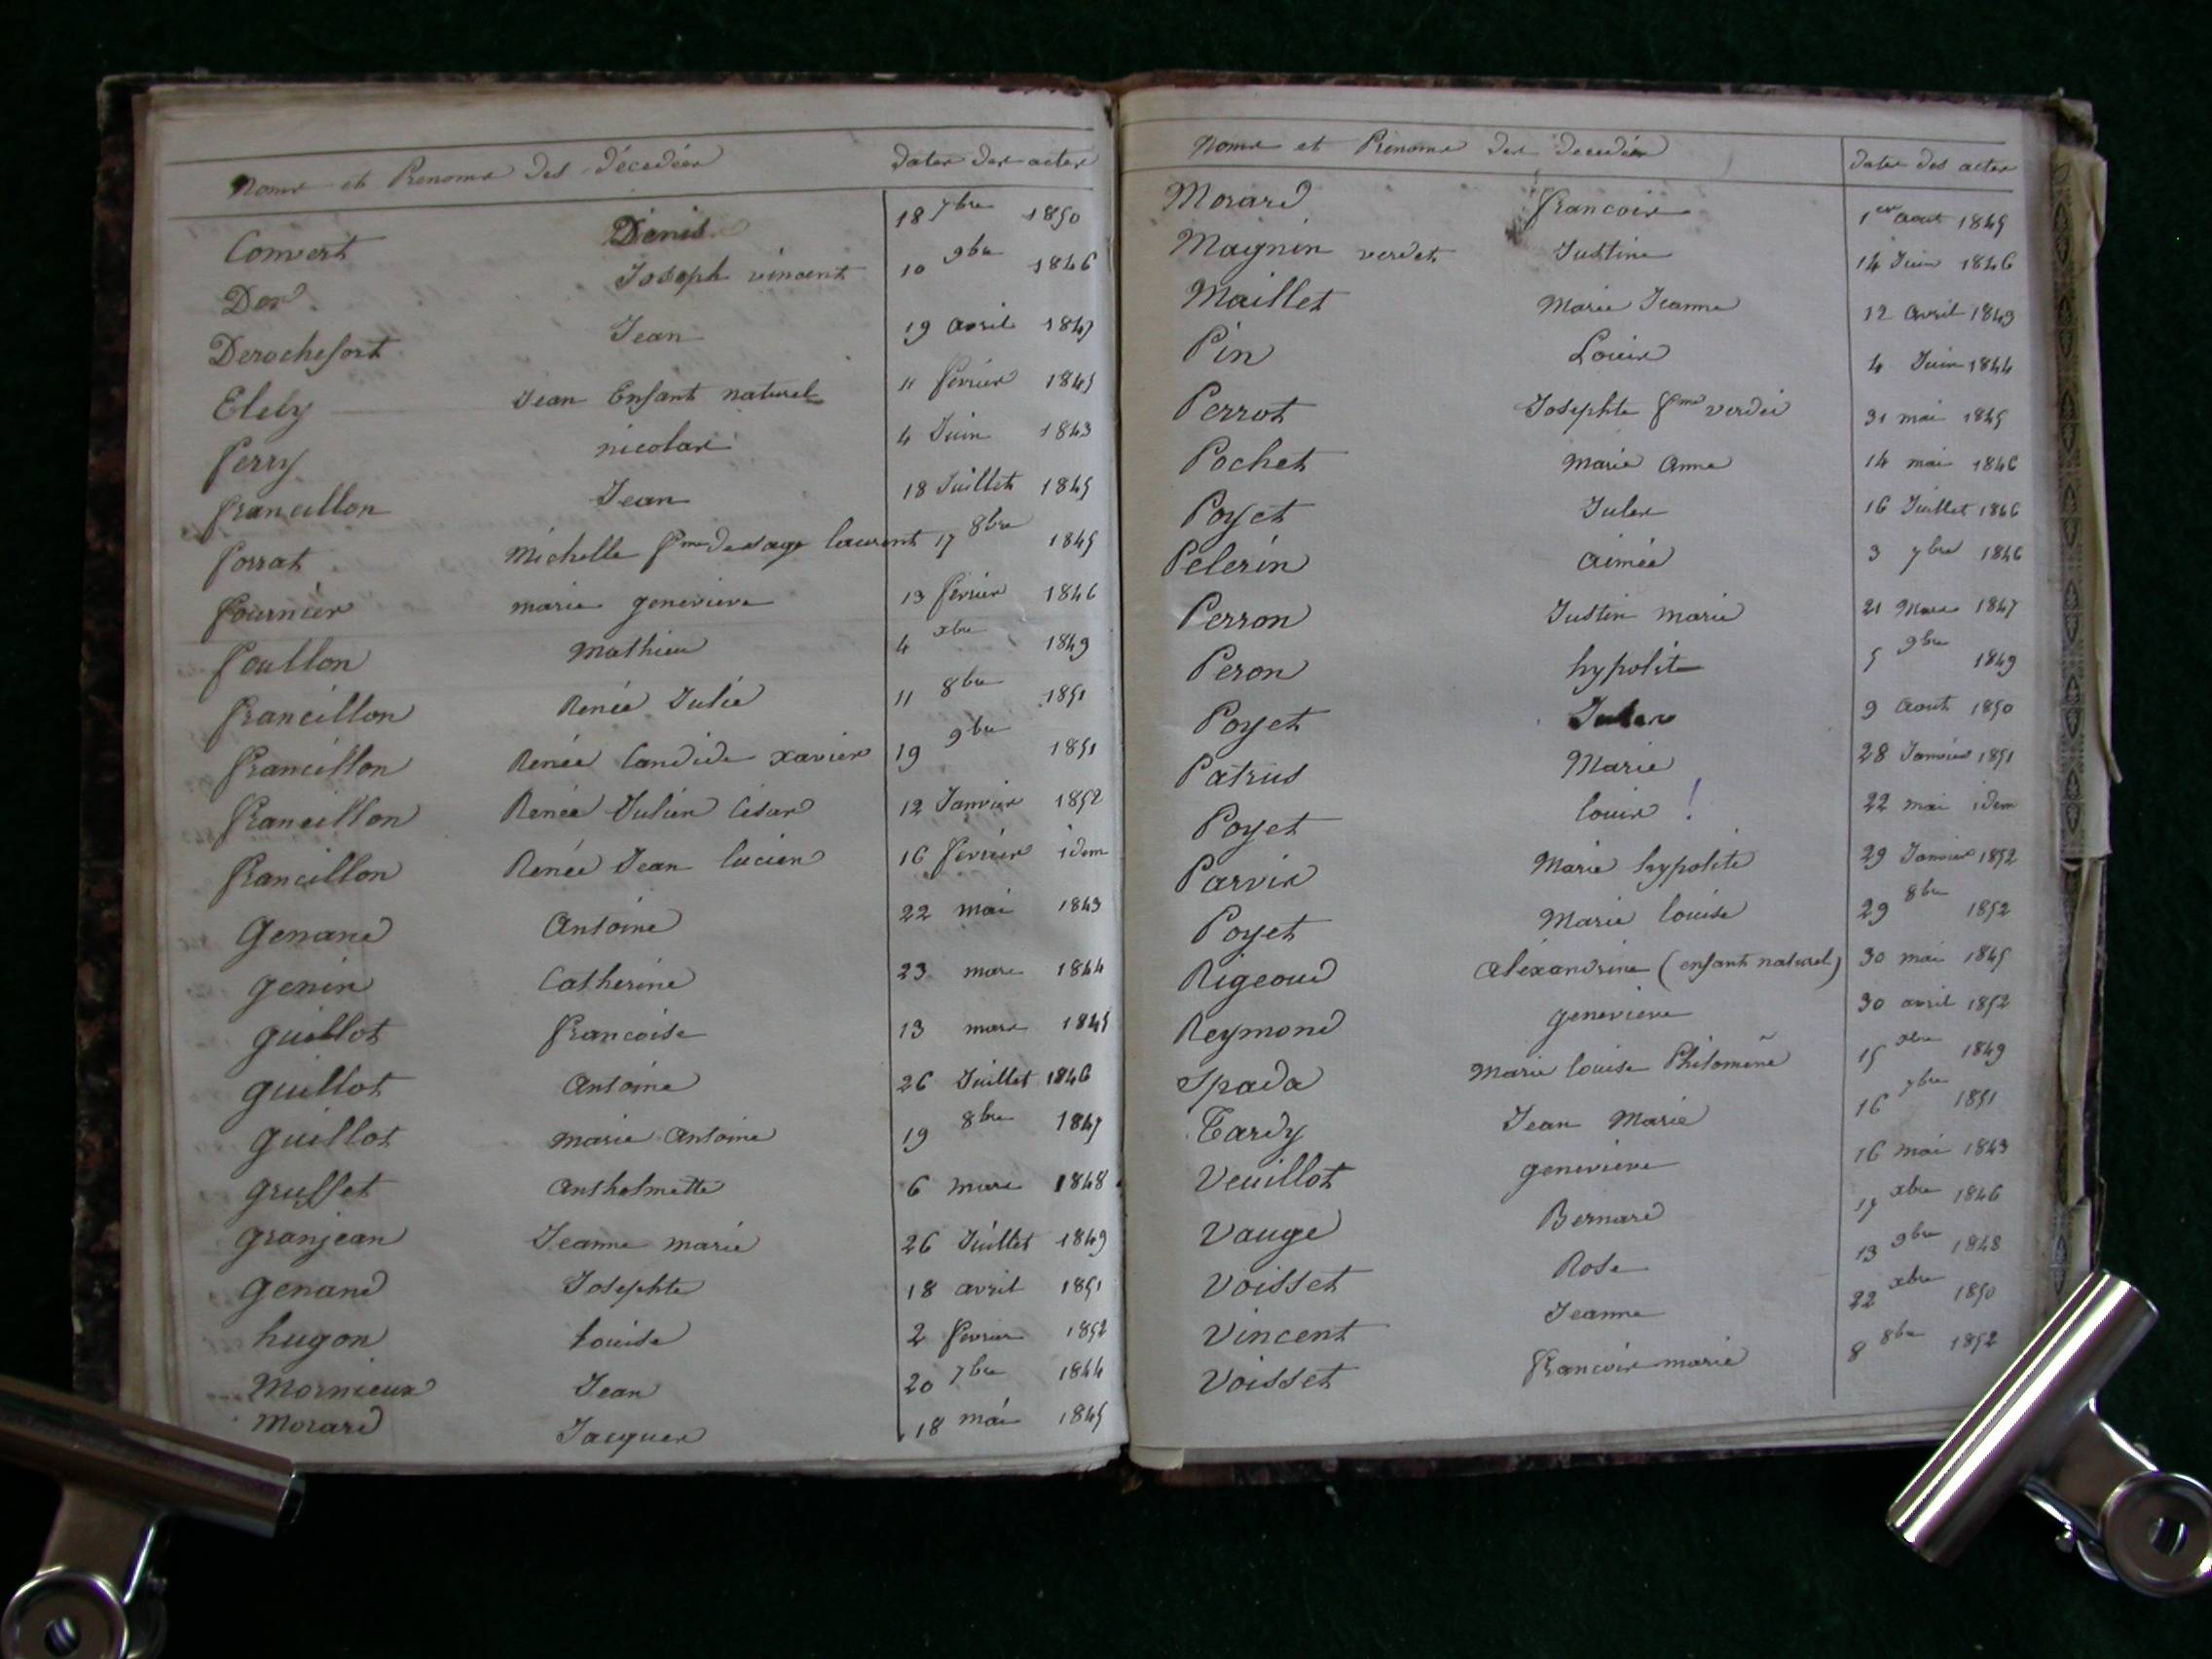 Noms et Prenoms des décédées Dates des actes
Convert Dénis 18 7bre 1850
Der Joseph vincent 10 9bre 1846
Derochefort Jean 19 avril 1847
Eleby Jean Enfant naturel 11 fevrier 1845
ferry nicolas 4 Juin 1843
francillon Jean 18 Juillet 1845
forrat Michelle fme desage laurent 17 8bre 1845
fournier marie genevieve 13 fevrier 1846
foullon Mathieu 4 xbre 1849
francillon Renée Julie 11 8bre 1851
francillon Renée Candide xavier 19 9bre 1851
francillon Renée Julien César 12 Janvier 1852
francillon Renée Jean lucien 16 fevrier idem
Genand Antoine 22 mai 1843
genin Catherine 23 mars 1844
guillot francoise 13 mars 1845
guillot Antoine 26 Juillet 1846
guillot marie Antoine 19 8bre 1847
gruffet Anthelmette 6 mars 1848
granjean Jeanne marie 26 Juillet 1849
genand Josephte 18 avril 1851
hugon louise 2 fevrier 1852
Mornieux Jean 20 7bre 1844
Morard Jacques 18 mai 1845
Noms et Prenoms des decedés dates des actes
Morard francois 1er aout 1845
Magnin verdet Justine 14 Juin 1846
Maillet Marie Jeanne 12 avril 1849
Pin Louis 4 Juin 1844
Perrot Josephte fme verdei 31 mai 1845
Pochet Marie Anne 14 mai 1846
Poyet Jules 16 Juillet 1846
Pelerin aimée 3 7bre 1846
Perron Justin marie 21 Mars 1847
Peron hypolite 5 9bre 1849
Poyet Jules 9 aout 1850
Patrus Marie 28 Janvier 1851
Poyet louis ! 22 mai idem
Parvis Marie hypolite 29 Janvier 1852
Poyet Marie louise 29 8bre 1852
Rigeoud alexandrine (enfant naturel) 30 mai 1845
Reymond genevieve 30 avril 1852
Spada Marie louise Philomene 15 xbre 1849
Tardy Jean Marie 16 7bre 1851
Veuillot genevieve 16 mai 1843
Vauge Bernard 17 xbre 1846
Voisset Rose 13 9bre 1848
Vincent Jeanne 22 xbre 1850
Voisset francois marie 8 8bre 1852